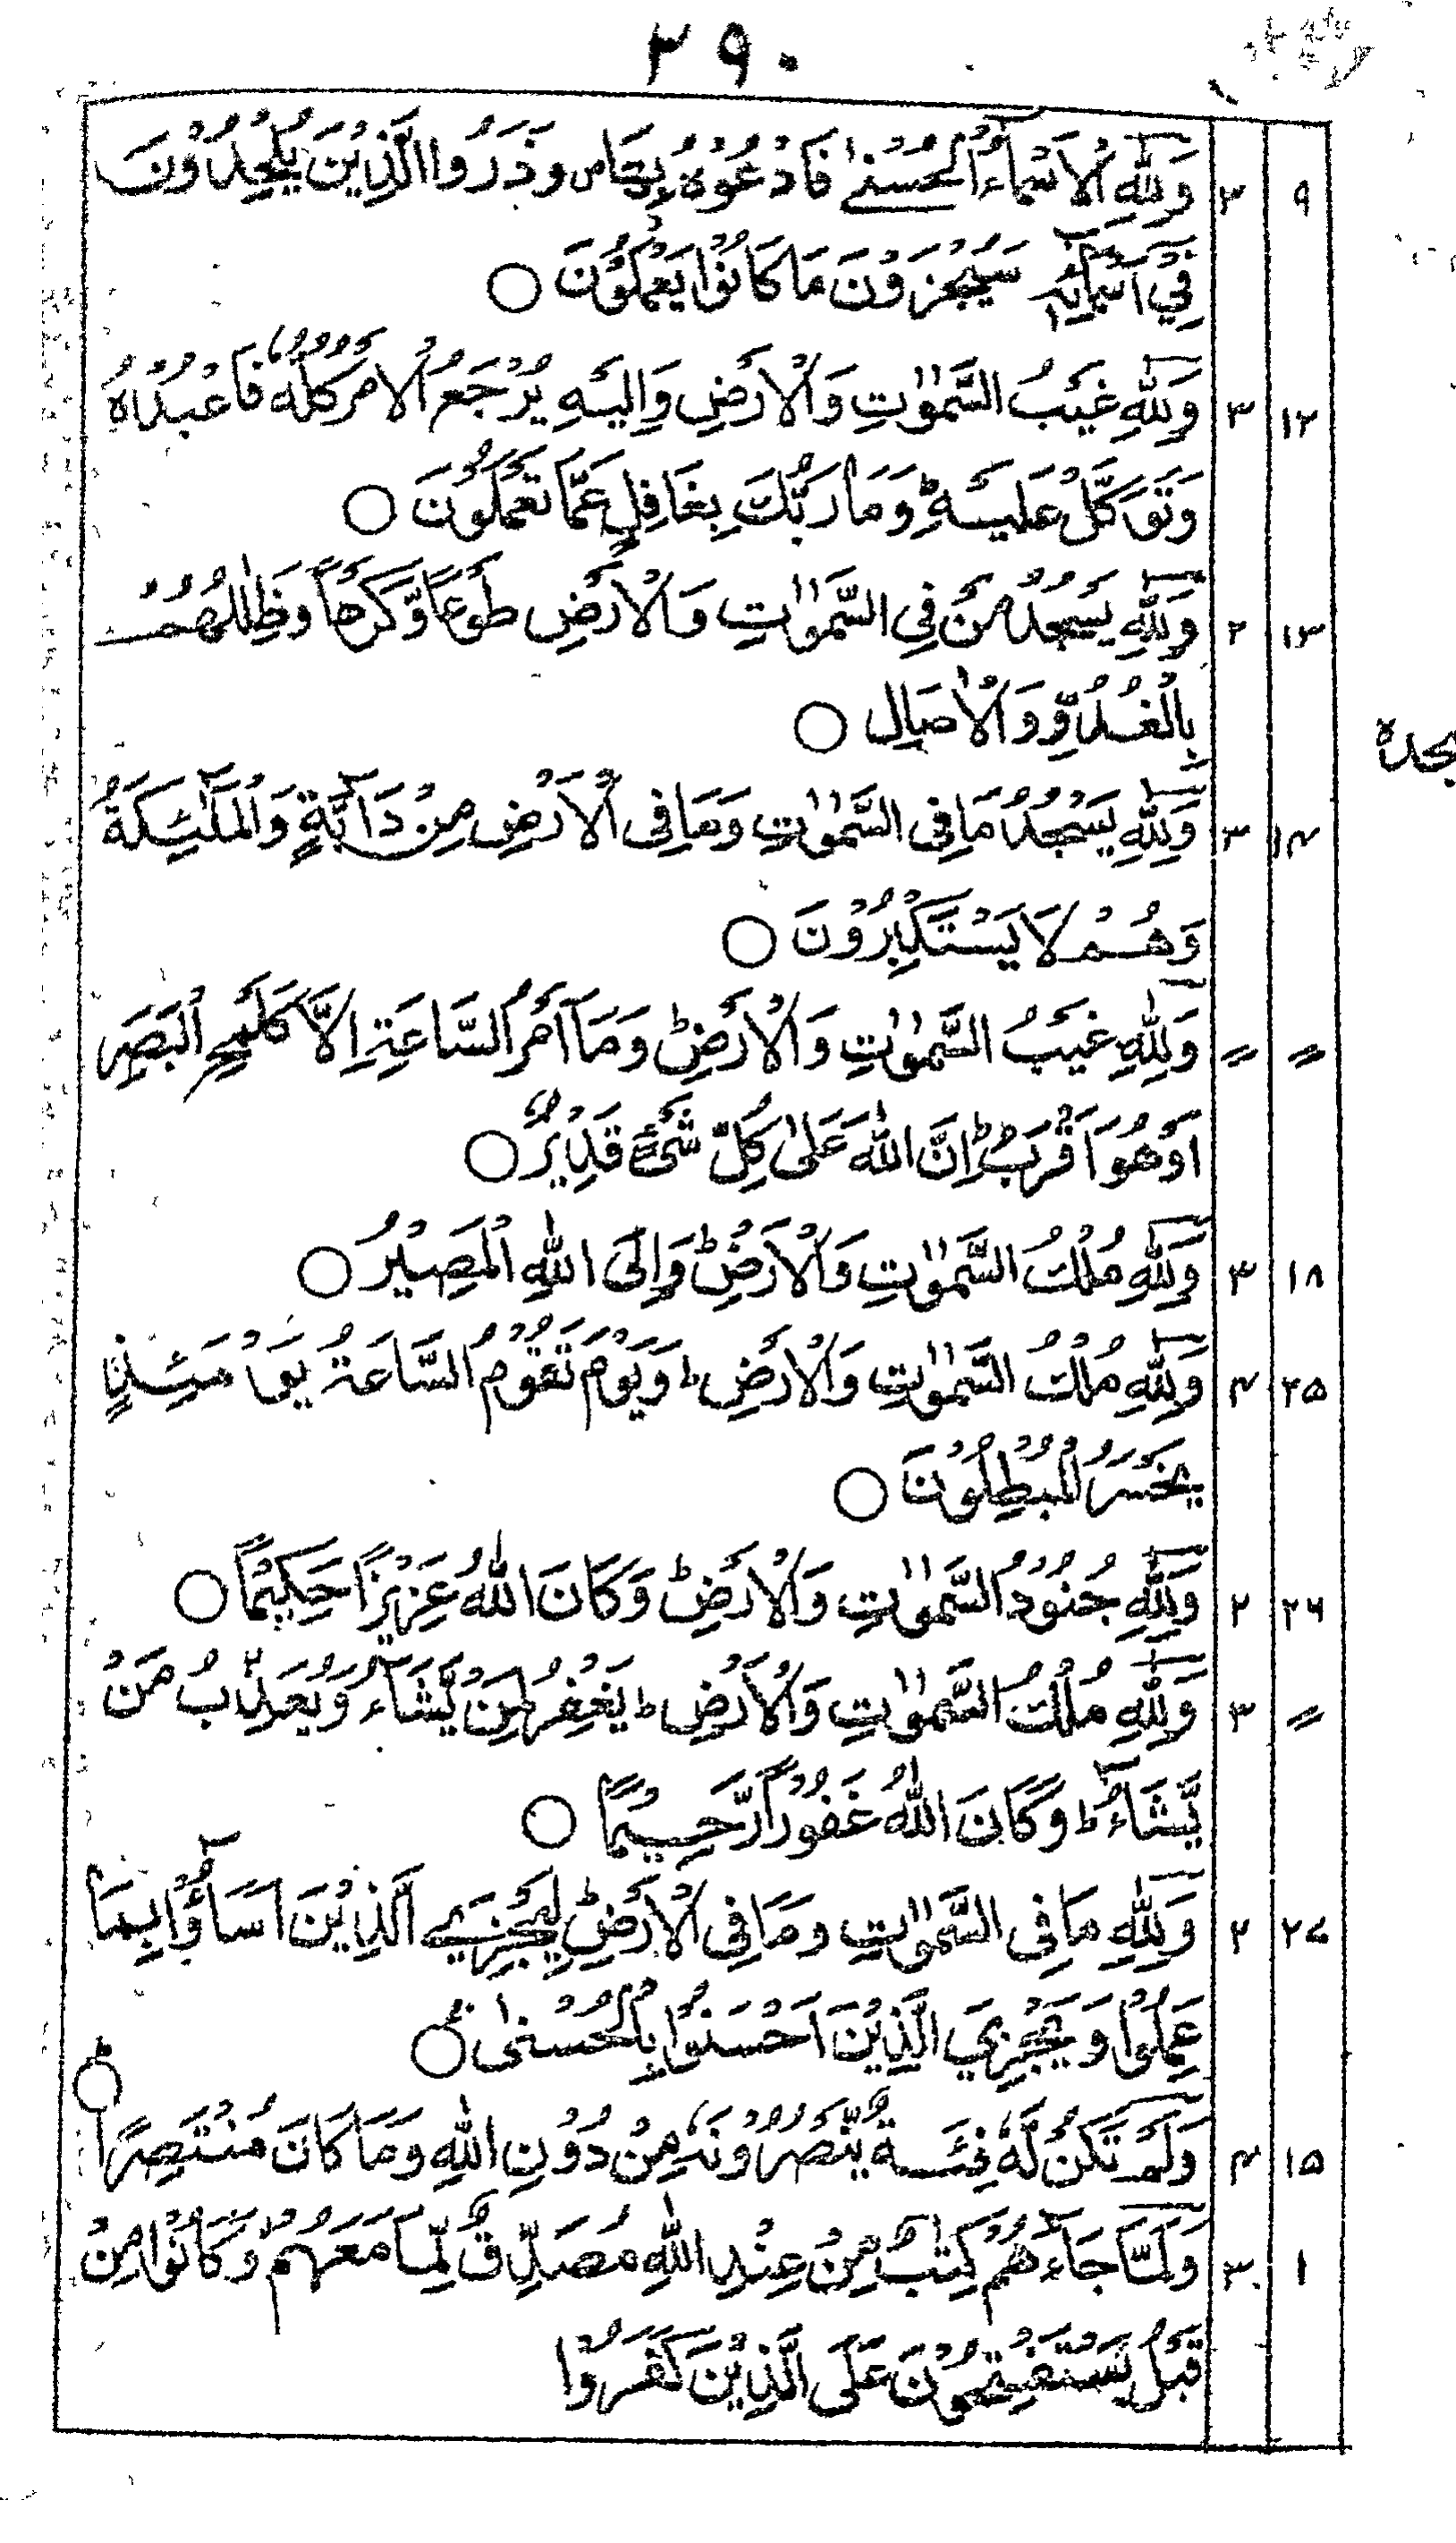 ۲۹۰
۹ ۳ وَلِلّٰهِ الْاَسْمَآءُ الْحُسْنٰى فَادْعُوْهُ بِهَا ص وَذَرُوا الَّذِيْنَ يُلْحِدُوْنَ
فِيْٓ اَسْمَآئِهٖ سَيُجْزَوْنَ مَا كَانُوْا يَعْمَلُوْنَ ○
۱۲ ۳ وَلِلّٰهِ غَيْبُ السَّمٰوٰتِ وَالْاَرْضِ وَاِلَيْهِ يُرْجَعُ الْاَمْرُ كُلُّهٗ فَاعْبُدْهُ
وَتَوَكَّلْ عَلَيْهِ ؕ وَمَا رَبُّكَ بِغَافِلٍ عَمَّا تَعْمَلُوْنَ ○
۱۳ ۲ وَلِلّٰهِ يَسْجُدُ مَنْ فِى السَّمٰوٰتِ وَالْاَرْضِ طَوْعًا وَّكَرْهًا وَّظِلٰلُهُمْ
بِالْغُدُوِّ وَالْاٰصَالِ ○
سجدہ
۱۴ ۳ وَلِلّٰهِ يَسْجُدُ مَا فِى السَّمٰوٰتِ وَمَا فِى الْاَرْضِ مِنْ دَآبَّةٍ وَّالْمَلٰٓئِكَةُ
وَهُمْ لَا يَسْتَكْبِرُوْنَ ○
〃 〃 وَلِلّٰهِ غَيْبُ السَّمٰوٰتِ وَالْاَرْضِ ؕ وَمَآ اَمْرُ السَّاعَةِ اِلَّا كَلَمْحِ الْبَصَرِ
اَوْ هُوَ اَقْرَبُ ؕ اِنَّ اللّٰهَ عَلٰى كُلِّ شَىْءٍ قَدِيْرٌ ○
۱۸ ۳ وَلِلّٰهِ مُلْكُ السَّمٰوٰتِ وَالْاَرْضِ ؕ وَاِلَى اللّٰهِ الْمَصِيْرُ ○
۲۵ ۴ وَلِلّٰهِ مُلْكُ السَّمٰوٰتِ وَالْاَرْضِ ؕ وَيَوْمَ تَقُوْمُ السَّاعَةُ يَوْمَئِذٍ
يَّخْسَرُ الْمُبْطِلُوْنَ ○
۲۶ ۲ وَلِلّٰهِ جُنُوْدُ السَّمٰوٰتِ وَالْاَرْضِ ؕ وَكَانَ اللّٰهُ عَزِيْزًا حَكِيْمًا ○
〃 ۳ وَلِلّٰهِ مُلْكُ السَّمٰوٰتِ وَالْاَرْضِ ؕ يَغْفِرُ لِمَنْ يَّشَآءُ وَيُعَذِّبُ مَنْ
يَّشَآءُ ؕ وَكَانَ اللّٰهُ غَفُوْرًا رَّحِيْمًا ○
۲۷ ۲ وَلِلّٰهِ مَا فِى السَّمٰوٰتِ وَمَا فِى الْاَرْضِ ؕ لِيَجْزِيَ الَّذِيْنَ اَسَآؤُا بِمَا
عَمِلُوْا وَيَجْزِيَ الَّذِيْنَ اَحْسَنُوْا بِالْحُسْنٰى ○
۱۵ ۴ وَلَمْ تَكُنْ لَّهٗ فِئَةٌ يَّنْصُرُوْنَهٗ مِنْ دُوْنِ اللّٰهِ وَمَا كَانَ مُنْتَصِرًا ○
۱ ۳ وَلَمَّا جَآءَهُمْ كِتٰبٌ مِّنْ عِنْدِ اللّٰهِ مُصَدِّقٌ لِّمَا مَعَهُمْ وَكَانُوْا مِنْ
قَبْلُ يَسْتَفْتِحُوْنَ عَلَى الَّذِيْنَ كَفَرُوْا